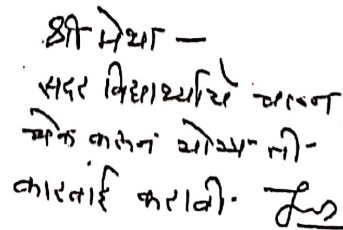 श्री मेथा —
सदर विद्यार्थ्याचे चलन
चेक करून योग्य ती-
कारवाई करावी.